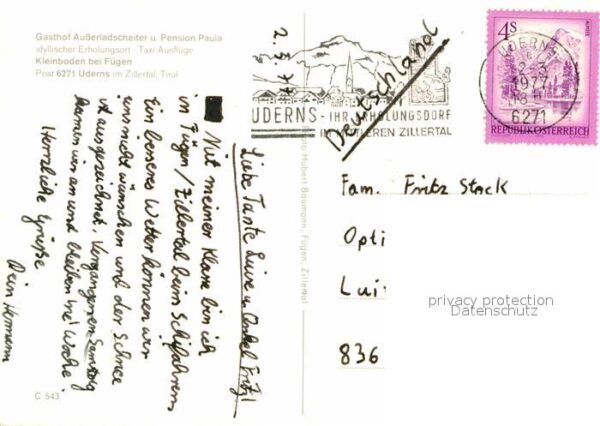 Gasthof Außerladscheiter u. Pension Paula
idyllischer Erholungsort · Taxi-Ausflüge
Kleinboden bei Fügen
Post 6271 Uderns im Zillertal, Tirol
2.3.77
Liebe Tante Luise u. Onkel Fritz!
Mit meiner Klasse bin ich
in Fügen/Zillertal beim Schifahren.
Ein besseres Wetter können wir
uns nicht wünschen und der Schnee
ist ausgezeichnet. Vergangenen Samstag
kamen wir an und bleiben ine Woche.
Herzliche Grüße
Dein Hermann
C 543
Foto Hubert Baumann, Fügen, Zillertal
UDERNS - IHR ERHOLUNGSDORF
IM MITTLEREN ZILLERTAL
Deutschland
4S
REPUBLIK ÖSTERREICH
UDERNS
1977
6271
Fam. Fritz Stock
Opti
Lui
836
privacy protection
Datenschutz